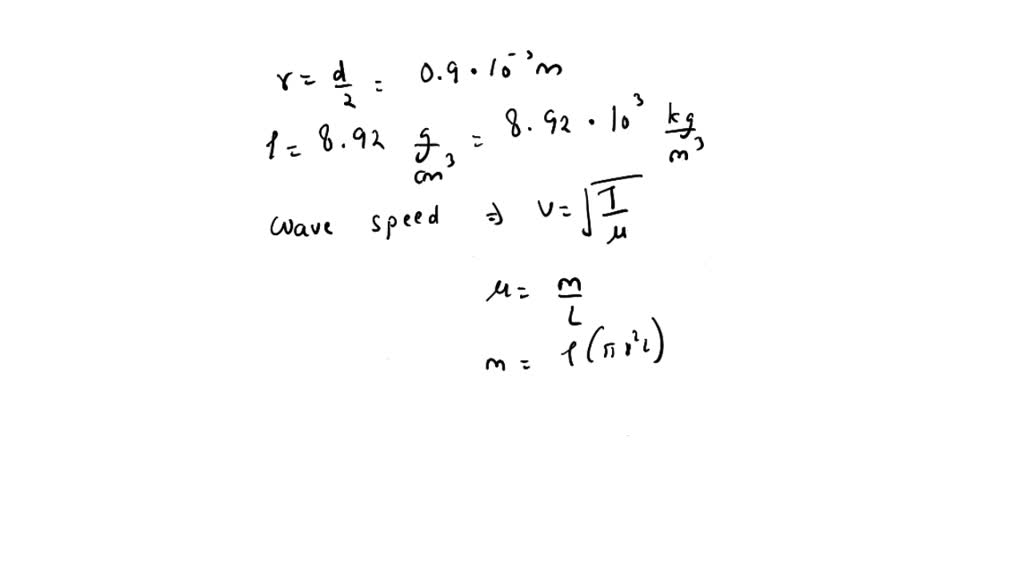 r = d/2 = 0.9 • 10⁻³ m
ρ = 8.92 g/cm³ = 8.92 • 10³ kg/m³
wave speed ⇒ v = √(T/μ)
μ = m/L
m = ρ(πr²L)